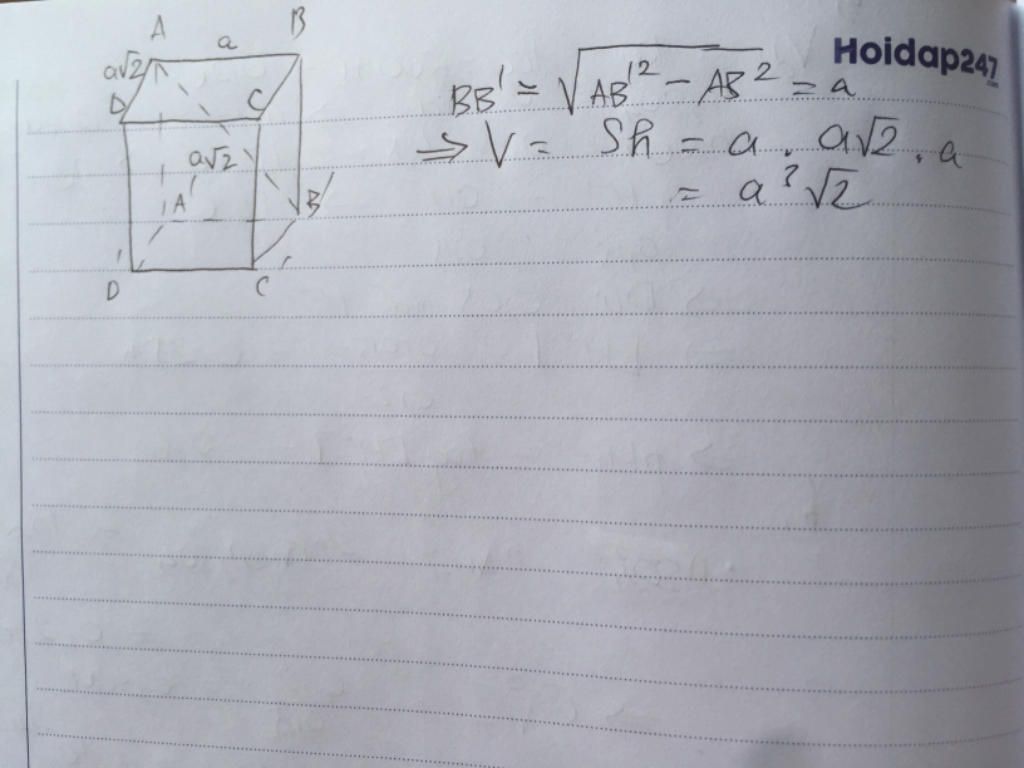 A
a
B
a√2
D
C
a√2
A'
B'
D'
C'
Hoidap247
.com
BB' = √AB'² - AB² = a
⇒ V = Sh = a . a√2 . a
= a³√2